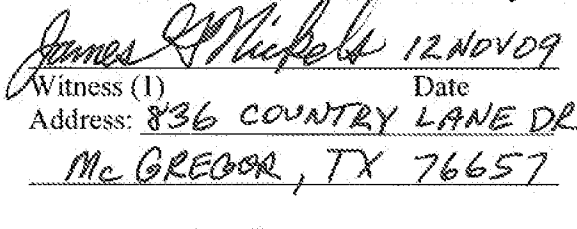 James G Nickels 12 NOV 09
Witness (1) Date
Address: 836 COUNTRY LANE DR
Mc GREGOR, TX 76657